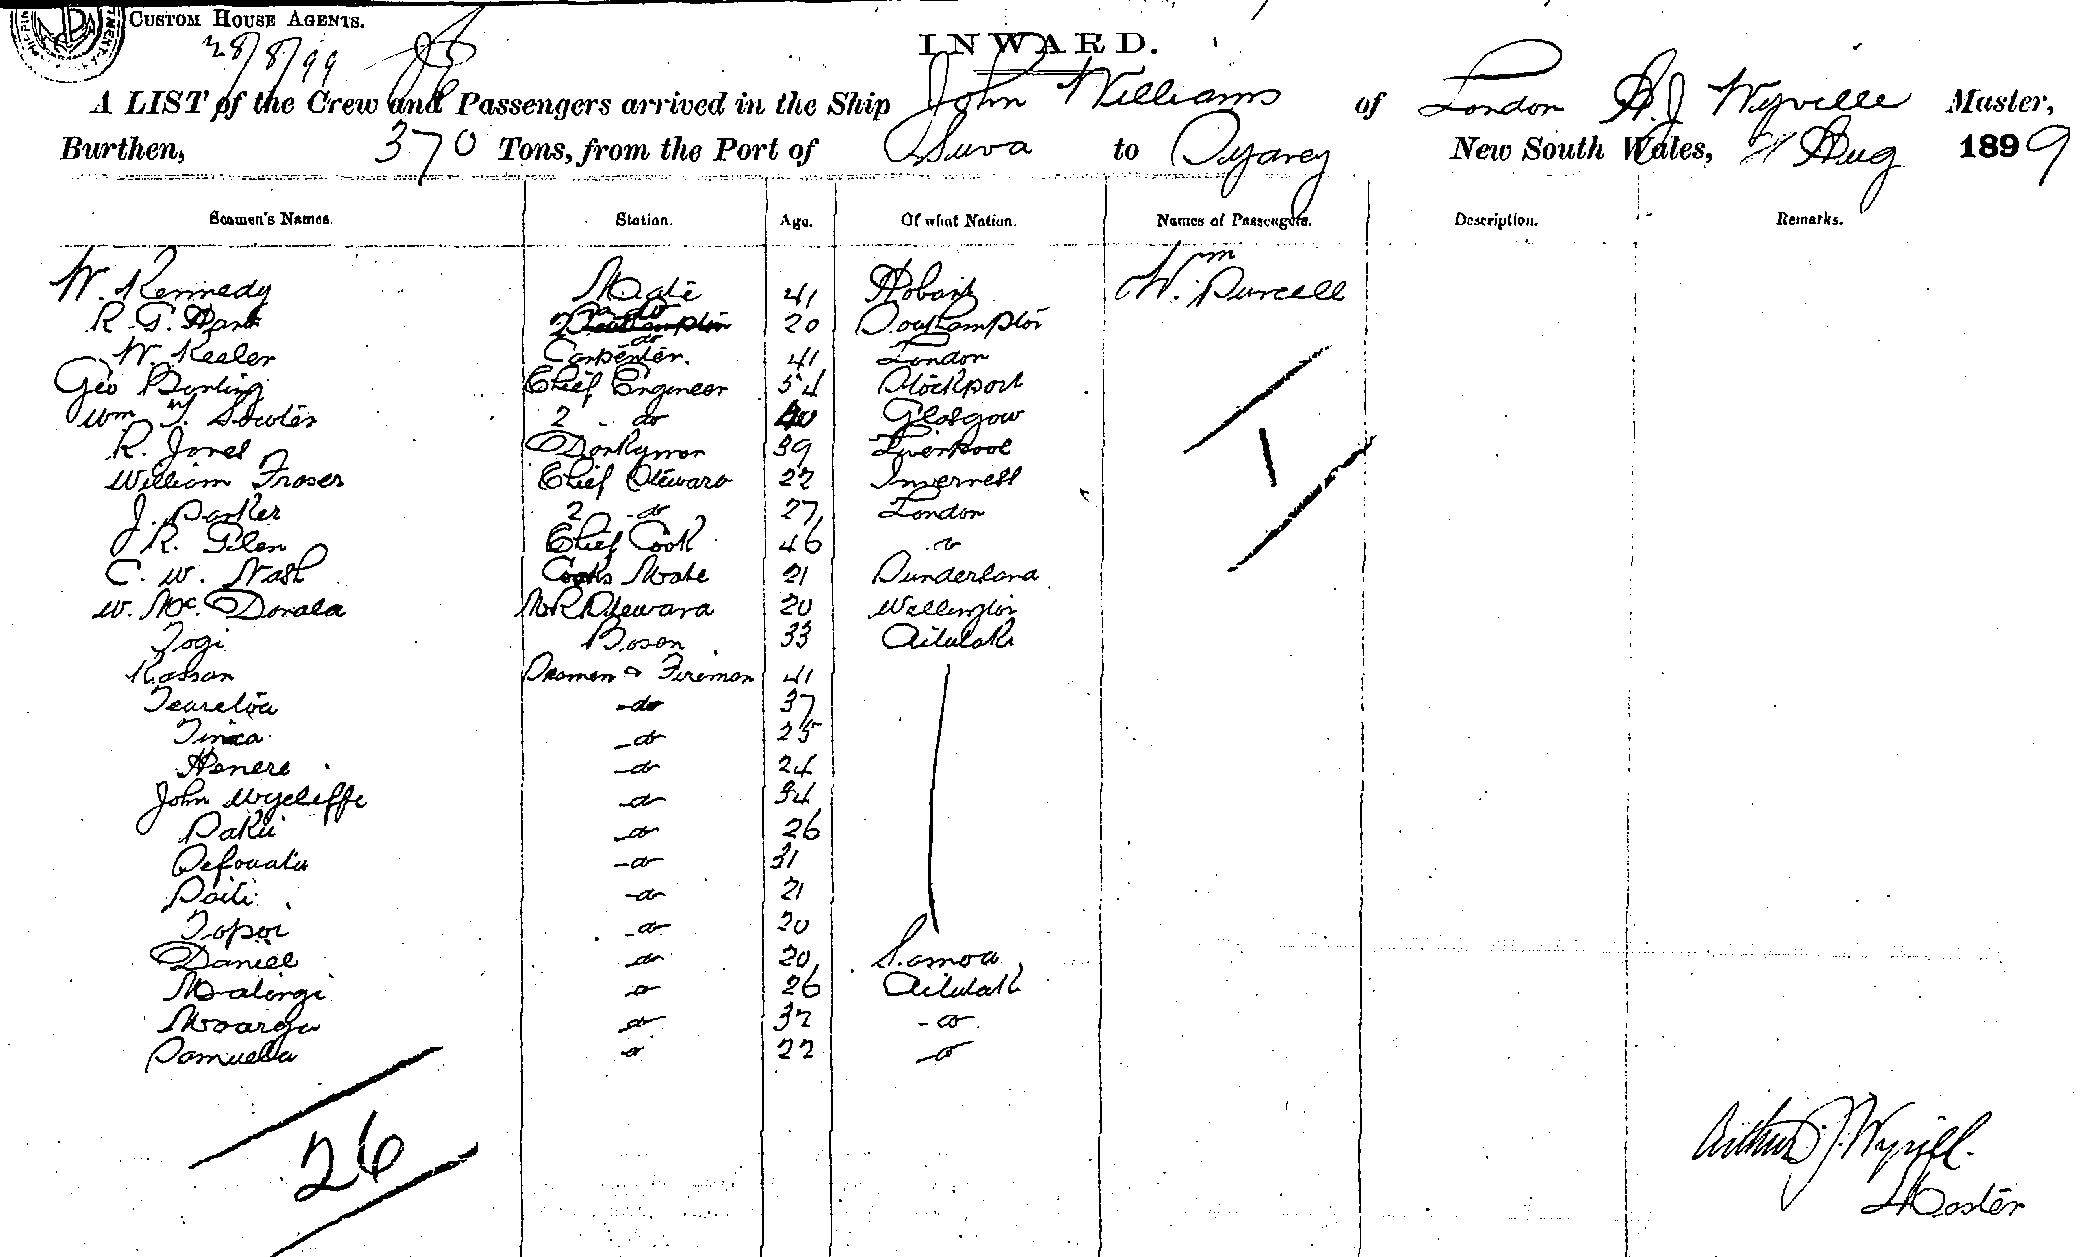 CUSTOM HOUSE AGENTS.
28/8/99
INWARD.
A LIST of the Crew and Passengers arrived in the Ship John Williams of London A J Wyrille Master,
Burthen, 370 Tons, from the Port of Suva to Sydney New South Wales, Aug 1899
Seamen's Names. Station. Age. Of what Nation. Names of Passengers. Description. Remarks.
W. Kennedy Mate 41 Hobart Wm W. Purcell
R. G. 2 do 20 Southampton
W. Kealer Carpenter. 41 London
Geo Chief Engineer 54 Stockport
Wm 2 do 40 Glasgow
R. Jones Donkyman 39 Liverpool
William Fraser Chief Steward 22 Inverness
J. Parker 2 do 27 London
R. Glen Chief Cook 46 do
C. W. Nash Cooks Mate 21 Sunderland
W. Mc. Donald M R Steward 20 Wellington
Togi Boson 33 Aitutaki
Kassan Seamen & Fireman 41
do 37
do 25
Henere do 24
John Wycliffe do 34
do 26
do 31
do 21
do 20
Daniel do 20 Samoa
do 26 Aitutaki
do 32 do
Samuela do 22 do
1
26
Arthur J. Wyrill.
Master